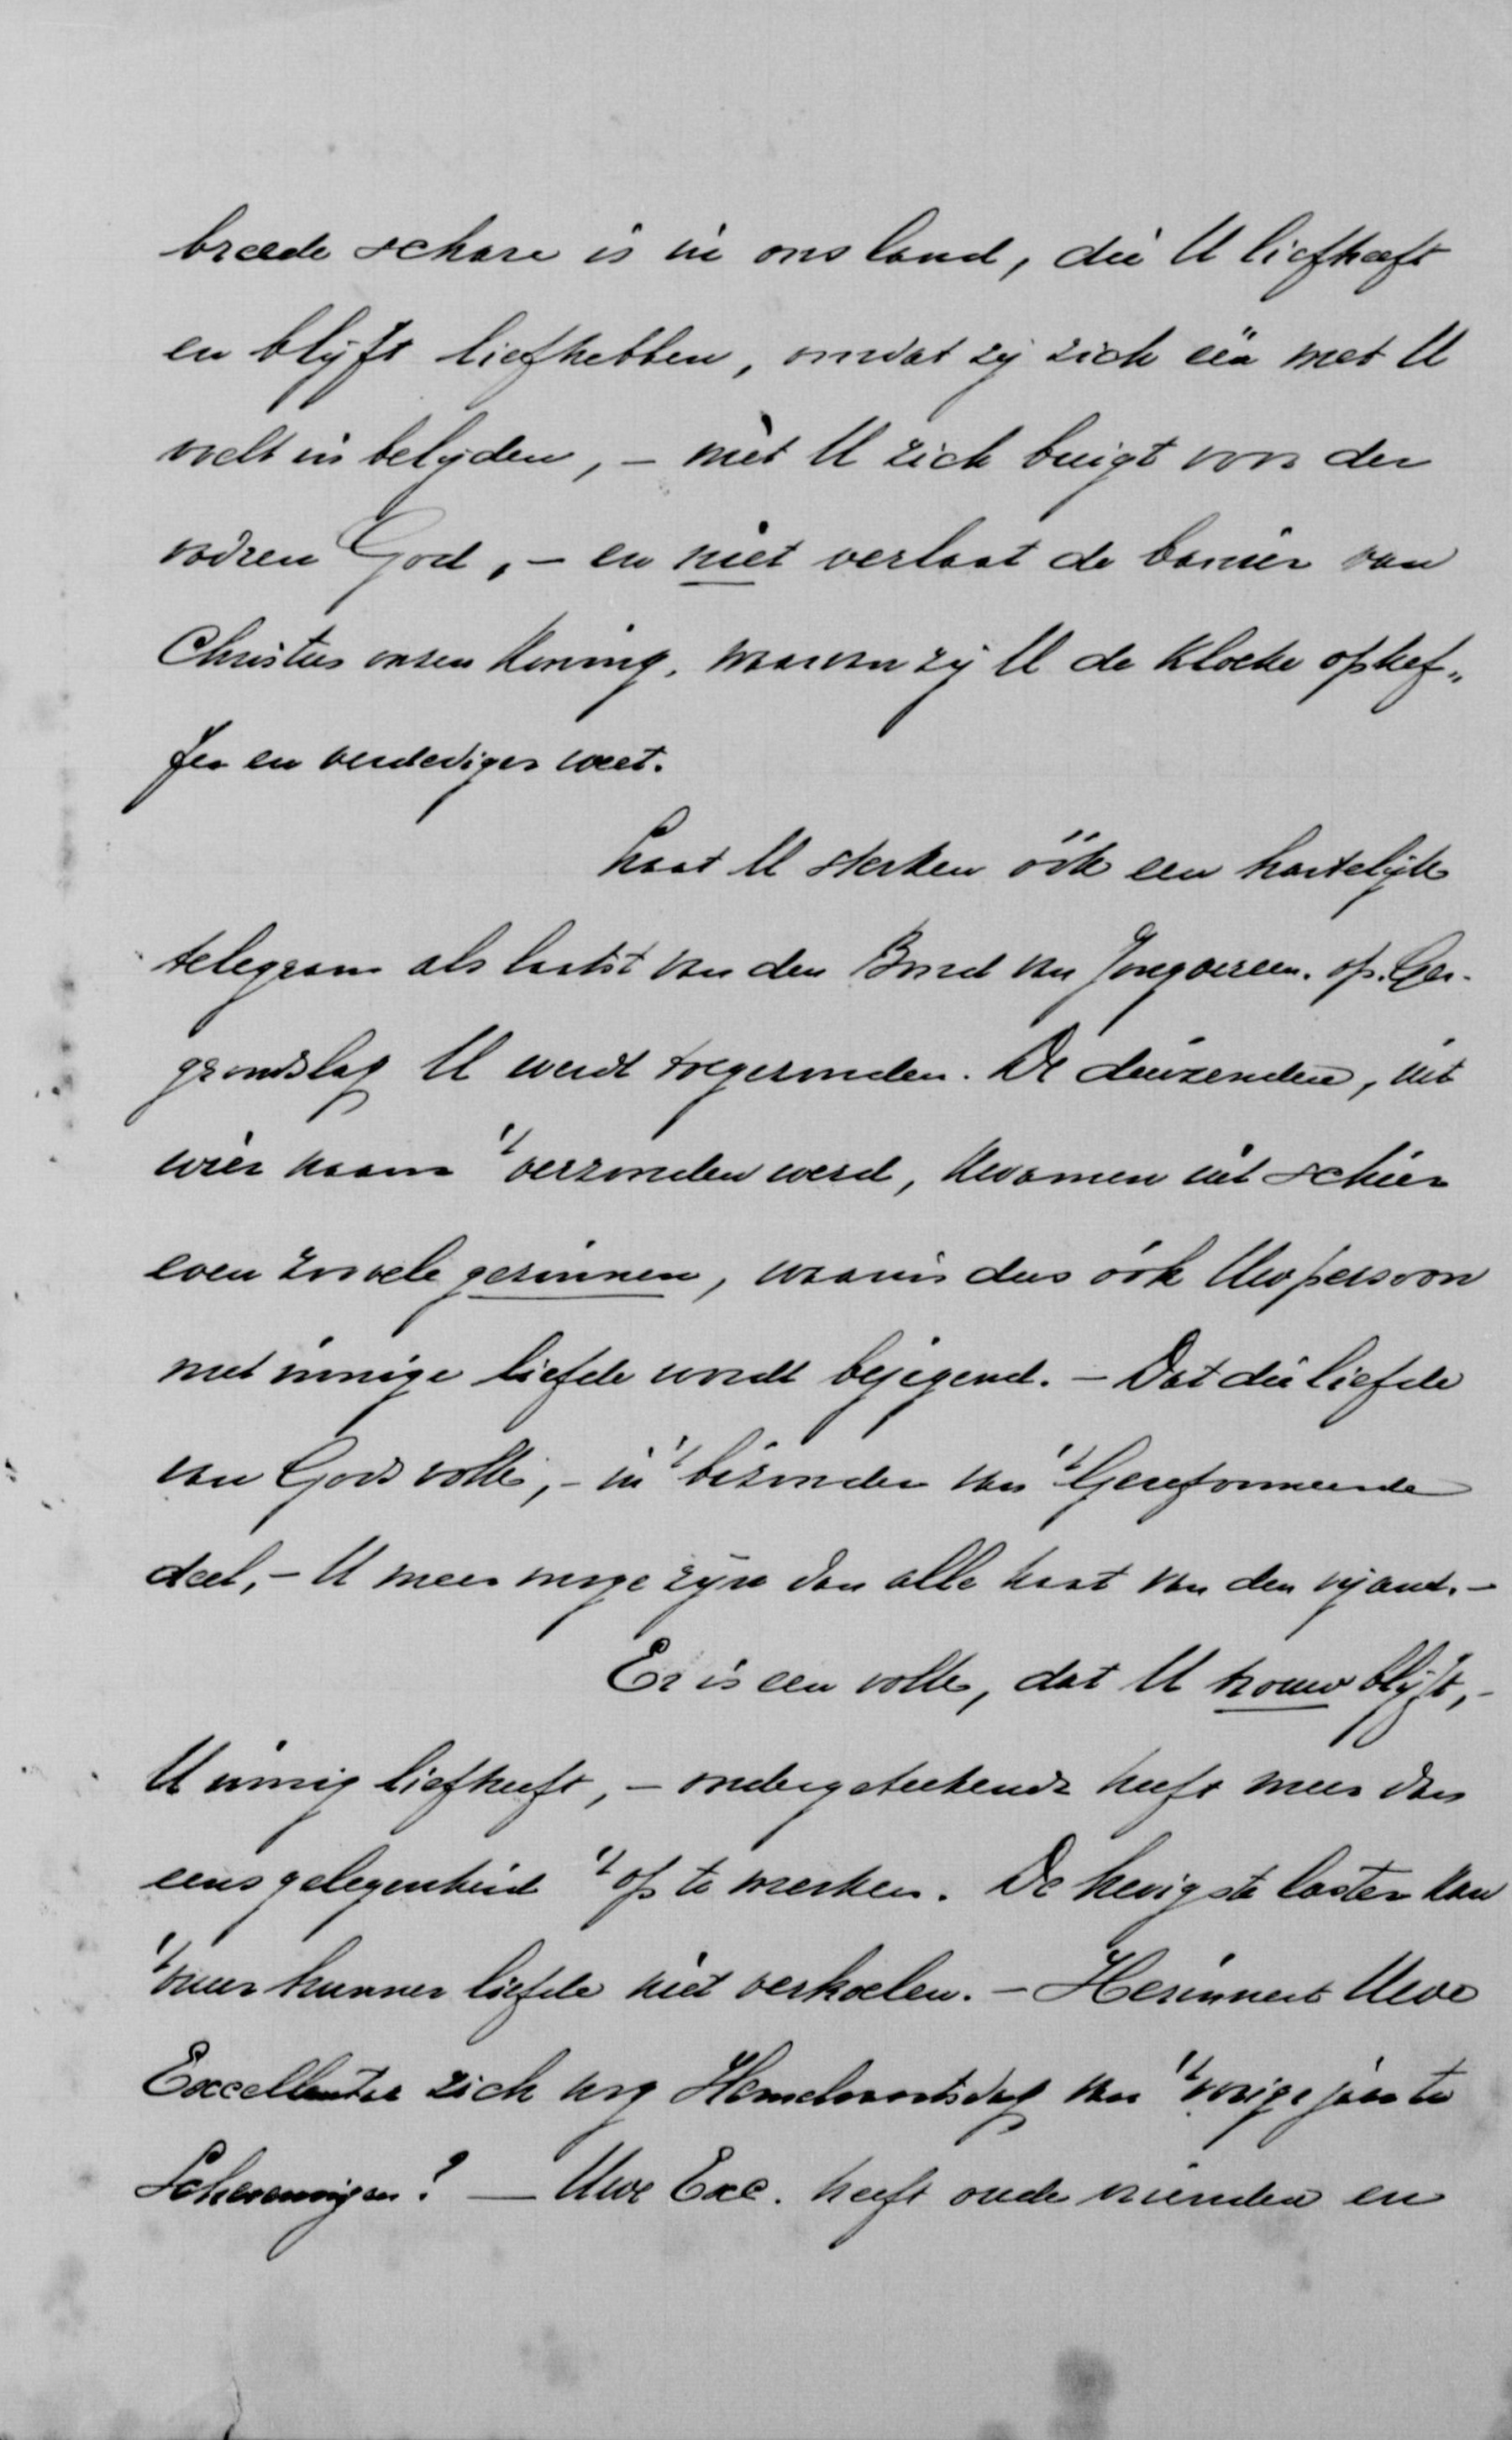 breede schare is in ons land, die U liefheeft
en blijft liefhebben, omdat zij zich één met U
voelt in belijden, – met U zich buigt voor den
vadren God, – en niet verlaat de banier van
Christus onzen Koning, waarvan zij U de kloeke ophef„
fer en verdediger weet.
Laat U sterken óók een hartelijk
telegram als laatst van den Bond van Jongvereen. op Ger.
grondslag U werdt toegezonden. De duizenden, uit
wier naam 't verzonden werd, kwamen uit schier
even zoovele gezinnen, waarin dus óók Uw persoon
met innige liefde wordt bejegend. – Dat die liefde
van Gods volk, – in 't bizonder van 't Gereformeerde
deel, – U meer moge zijn dan alle haat van den vijand. –
Er is een volk, dat U trouw blijft, –
U innig liefheeft, – ondergeteekende heeft meer dan
eens gelegenheid 't op te merken. De hevigste laster kan
't vuur hunner liefde niet verkoelen. – Herinnert Uwe
Excellentie zich nog Hemelvaartsdag van 't vorige jaar te
Scheveningen? — Uwe Exc. heeft oude vrienden en